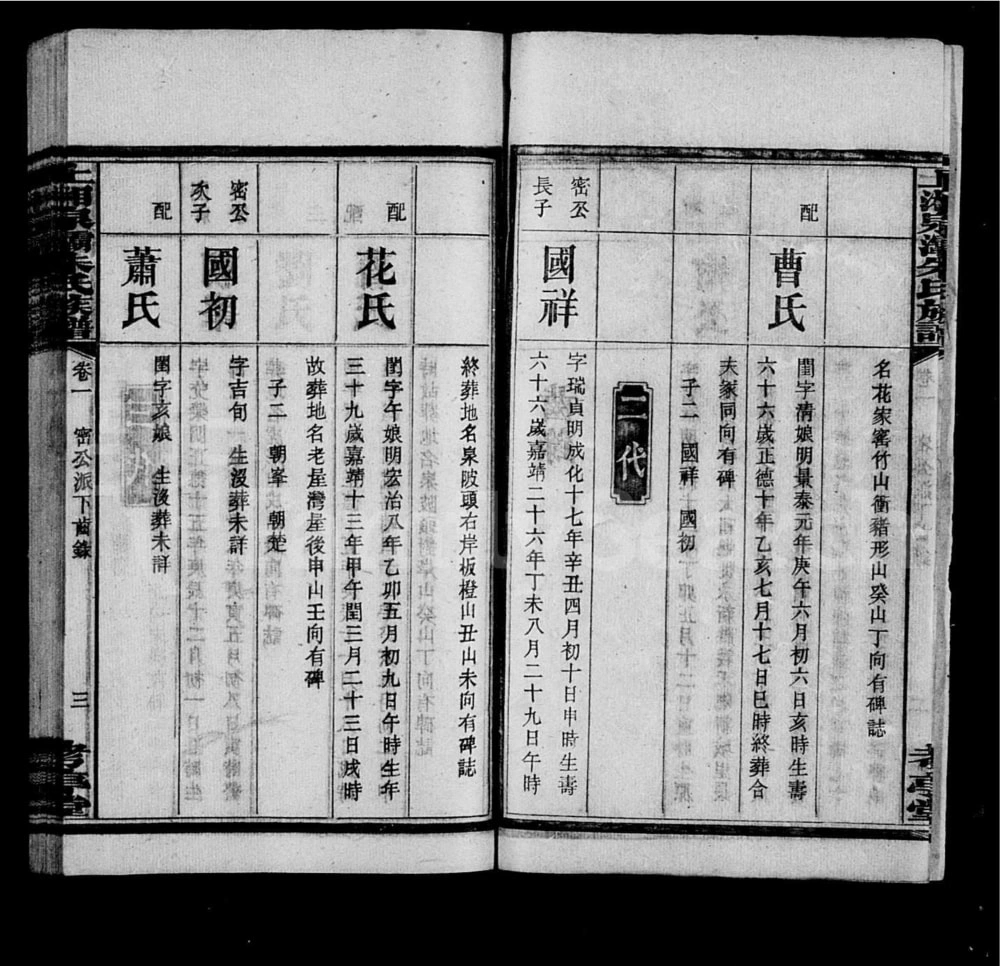 名花家窰竹山衝豬形山癸山丁向有碑誌
配
曹氏
閨字清娘明景泰元年庚午六月初六日亥時生壽
六十六歲正德十年乙亥七月十七日巳時終葬合
夫冢同向有碑
子二 國祥 國初
二代
密公
長子
國祥
字瑞貞明成化十七年辛丑四月初十日申時生壽
六十六歲嘉靖二十六年丁未八月二十九日午時
終葬地名泉陂頭右岸板橙山丑山未向有碑誌
配
花氏
閨字午娘明宏治八年乙卯五月初九日午時生年
三十九歲嘉靖十三年甲午閏三月二十三日戌時
故葬地名老屋灣屋後申山壬向有碑
子二 朝峯 朝楚
密公
次子
國初
字吉旬 生沒葬未詳
配
蕭氏
閨字亥娘 生沒葬未詳
上湘泉灣朱氏族譜
卷一
密公派下齒錄
三
考亭堂